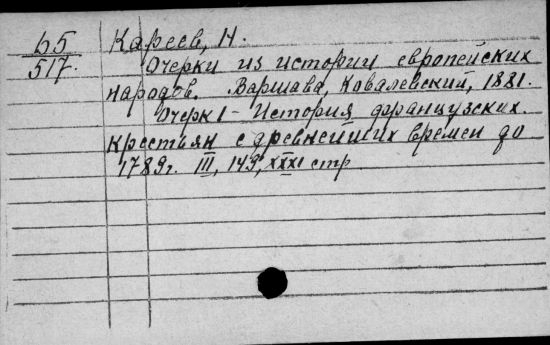 65
517.
Кареев, Н.
Очерки из истории европейских
народов. Варшава, Ковалевский, 1881.
Очерк I - История французских
крестьян с древнейших времен до
1789г. III, 149, XXXI стр